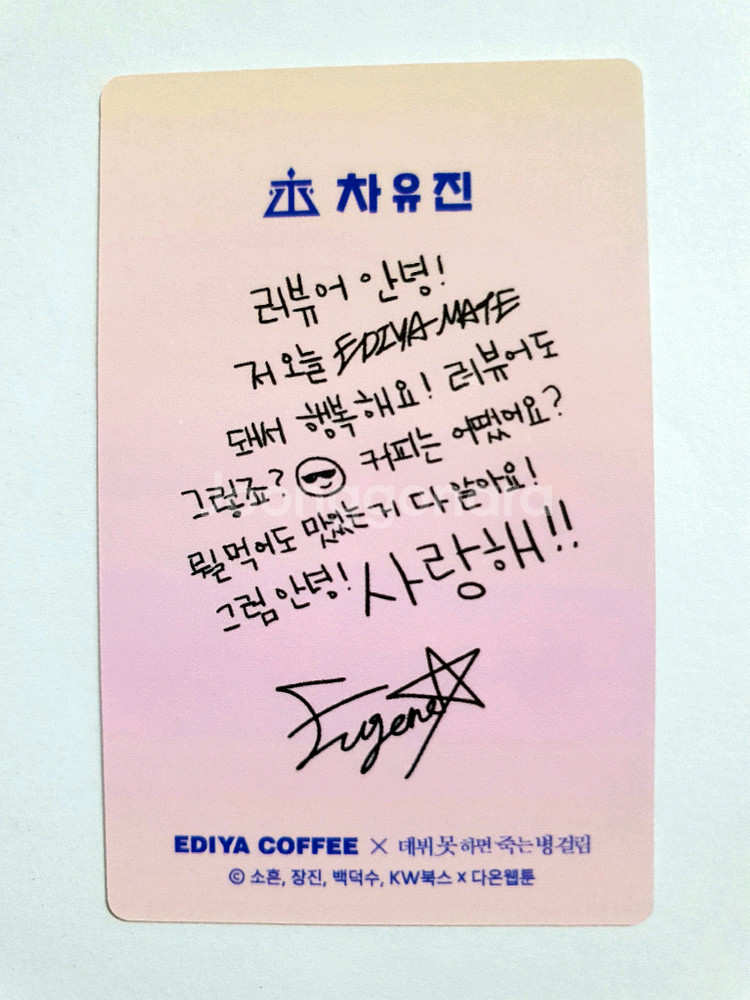 차유진
러뷰어 안녕!
저 오늘 EDIYA-MATE
돼서 행복해요! 러뷰어도
그렇죠? 커피는 어땠어요?
뭘 먹어도 맛있는 거 다 알아요!
그럼 안녕! 사랑해!!
Eugene
EDIYA COFFEE × 데뷔 못 하면 죽는 병 걸림
© 소흔, 장진, 백덕수, KW북스 x 다온웹툰